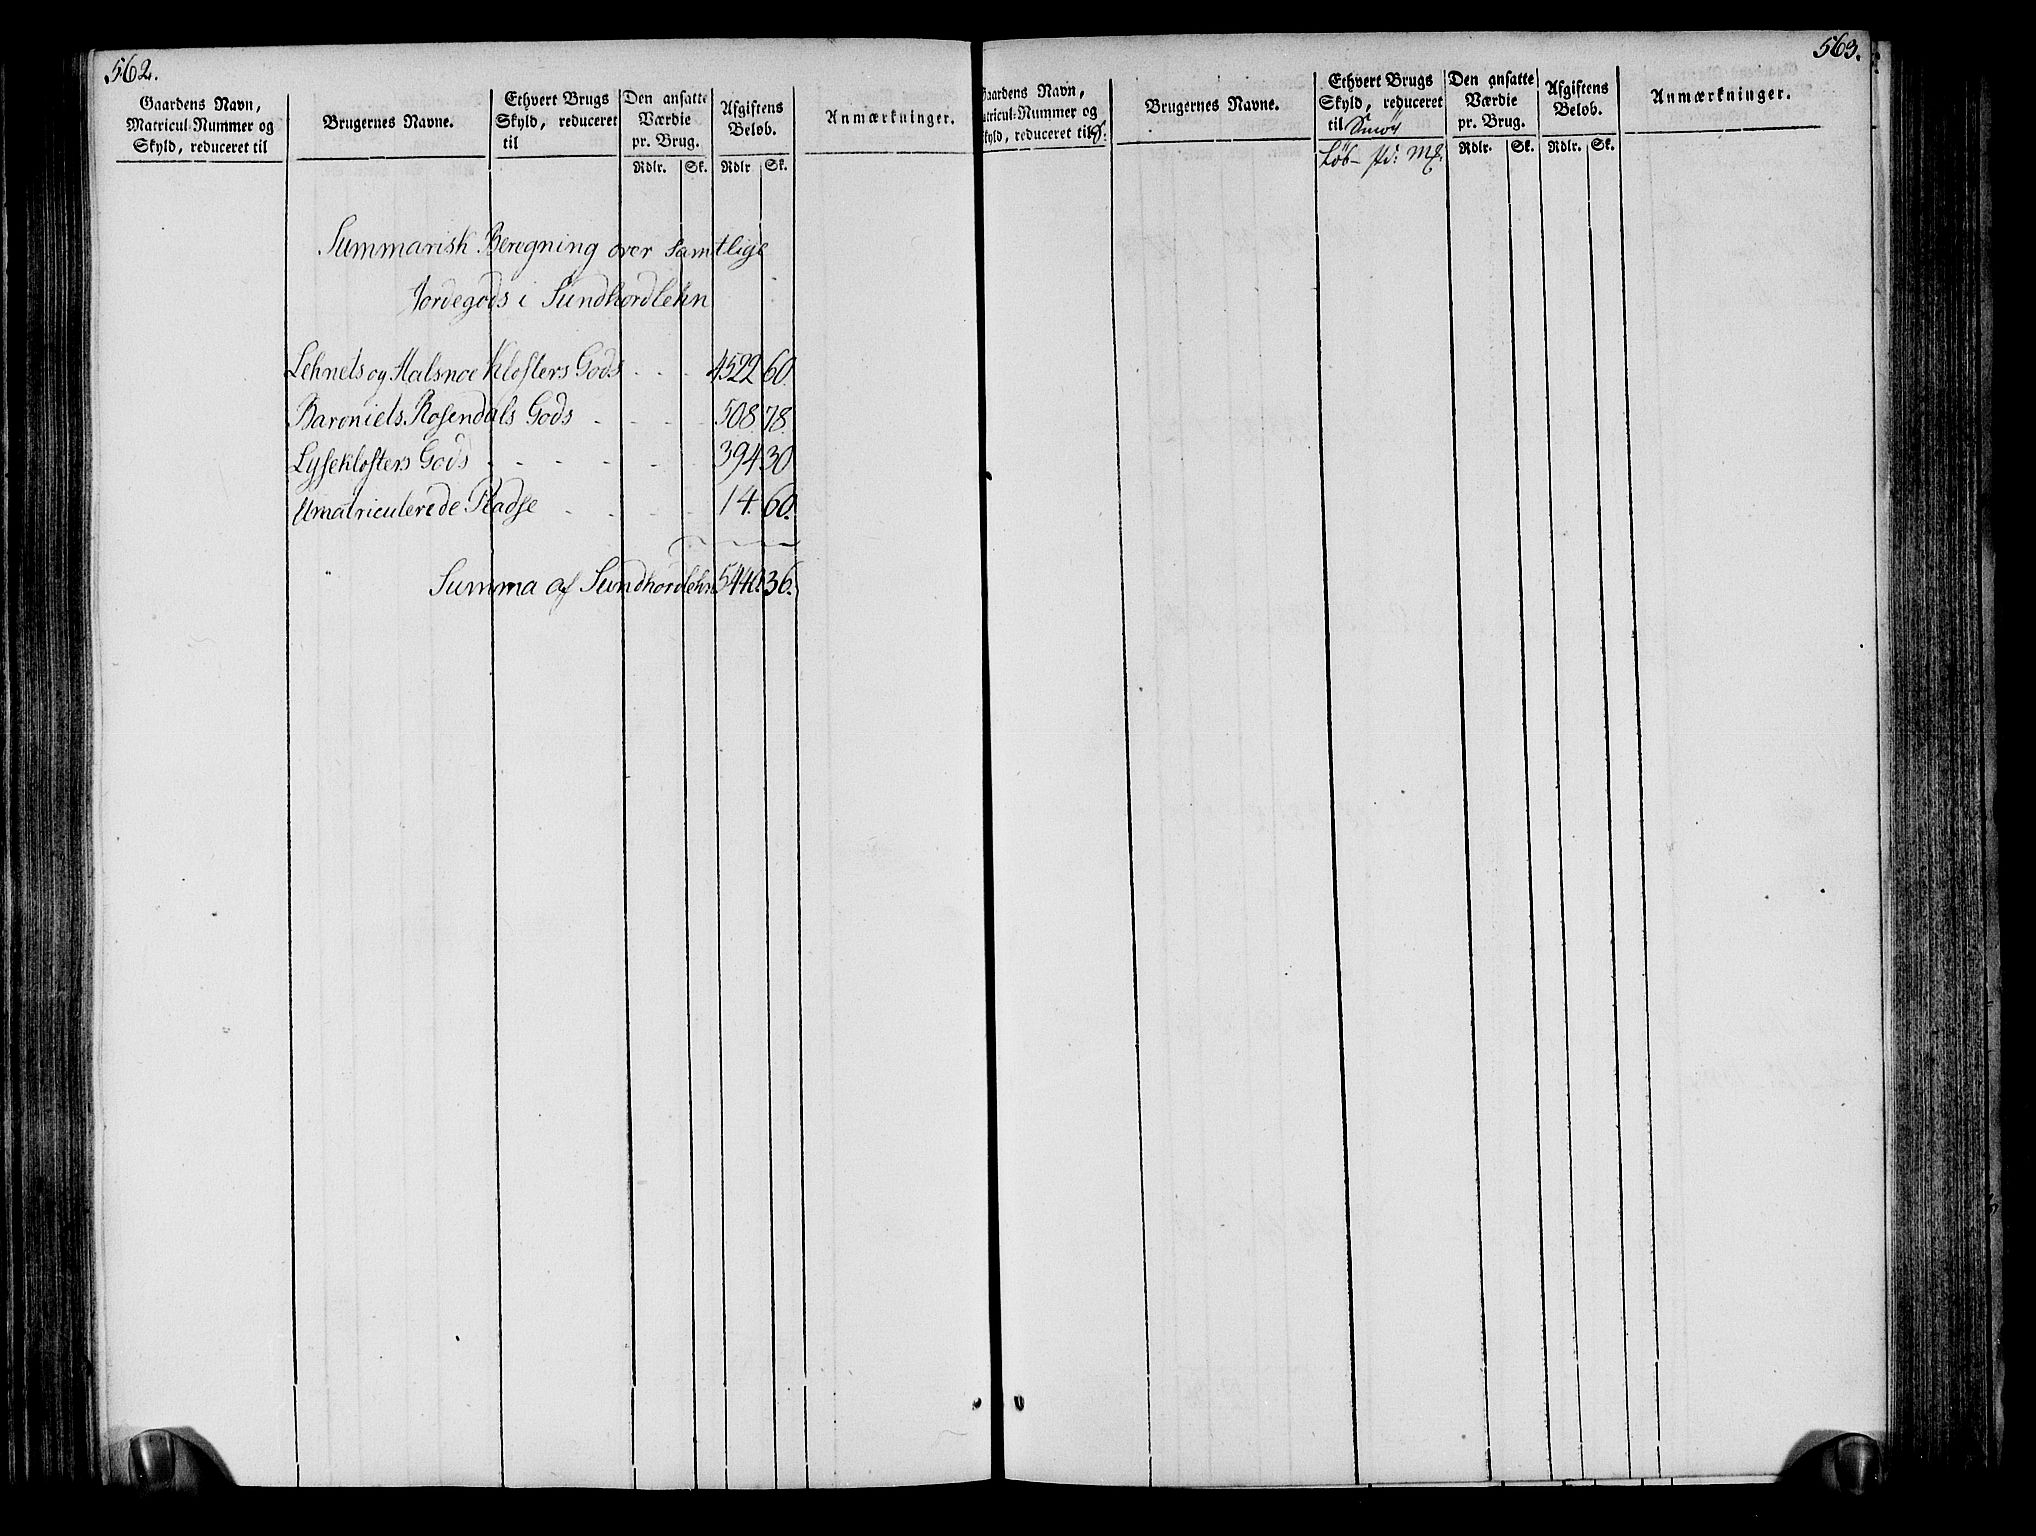 562.
Gaardens Navn,
Matricul-Nummer og
Skyld, reduceret til
Brugernes Navne.
Ethvert Brugs
Skyld, reduceret
til
Den ansatte
Værdie
pr. Brug.
Rdlr. Sk.
Afgiftens
Beløb.
Rdlr Sk.
Anmærkninger.
Summarisk Beregning over samtlige
Jordegods i Sundhordlehn
Lehnets og Halsnøe Klosters Gods - - 4522 60.
Baroniets Rosendals Gods - - - - 508. 78.
Lyseklosters Gods - - - - - 394 30
Umatriculerede Pladse - - - - 14. 60.
Summa af Sundhordlehn 5440. 36.
563.
Gaardens Navn,
Matricul-Nummer og
Skyld, reduceret til
Brugernes Navne.
Ethvert Brugs
Skyld, reduceret
til Smør
Løb - pd: M&.
Den ansatte
Værdie
pr. Brug.
Rdlr. Sk.
Afgiftens
Beløb.
Rdlr. Sk.
Anmærkninger.